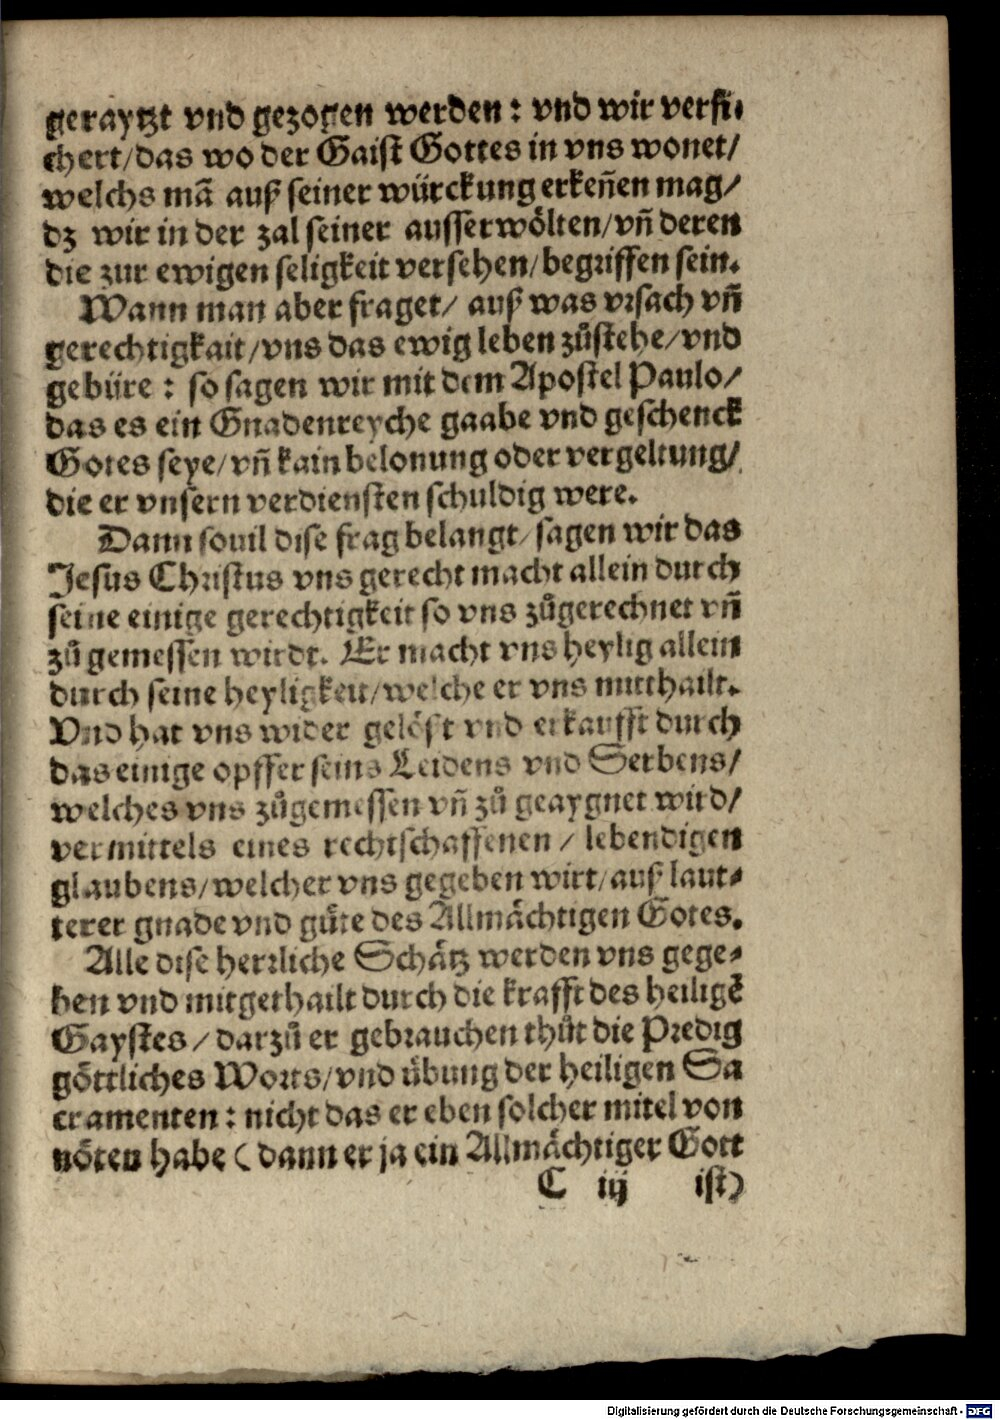 geraytzt vnd gezogen werden: vnd wir versi-
chert/das wo der Gaist Gottes in vns wonet/
welchs mā auß seiner würckung erkeñen mag/
dz wir in der zal seiner ausserwölten/vñ deren
die zur ewigen seligkeit versehen/begriffen sein.
Wann man aber fraget/ auß was vrsach vñ
gerechtigkait/vns das ewig leben zůstehe/vnd
gebüre: so sagen wir mit dem Apostel Paulo/
das es ein Gnadenreyche gaabe vnd geschenck
Gotes seye/vñ kain belonung oder vergeltung/
die er vnsern verdiensten schuldig were.
Dann souil dise frag belangt/sagen wir das
Jesus Christus vns gerecht macht allein durch
seine einige gerechtigkeit so vns zůgerechnet vñ
zů gemessen wirdt. Er macht vns heylig allein
durch seine heyligkeit/welche er vns mitthailt.
Vnd hat vns wider gelöst vnd erkaufft durch
das einige opffer seins Leidens vnd Serbens/
welches vns zůgemessen vñ zů geaygnet wird/
vermittels eines rechtschaffenen / lebendigen
glaubens/welcher vns gegeben wirt/auß laut-
terer gnade vnd gůte des Allmächtigen Gotes.
Alle dise herrliche Schätz werden vns gege-
ben vnd mitgethailt durch die krafft des heiligē
Gaystes/ darzů er gebrauchen thůt die Predig
göttliches Worts/vnd übung der heiligen Sa
cramenten: nicht das er eben solcher mitel von
nöten habe (dann er ja ein Allmächtiger Gott
C iij ist)
Digitalisierung gefördert durch die Deutsche Forschungsgemeinschaft - DFG